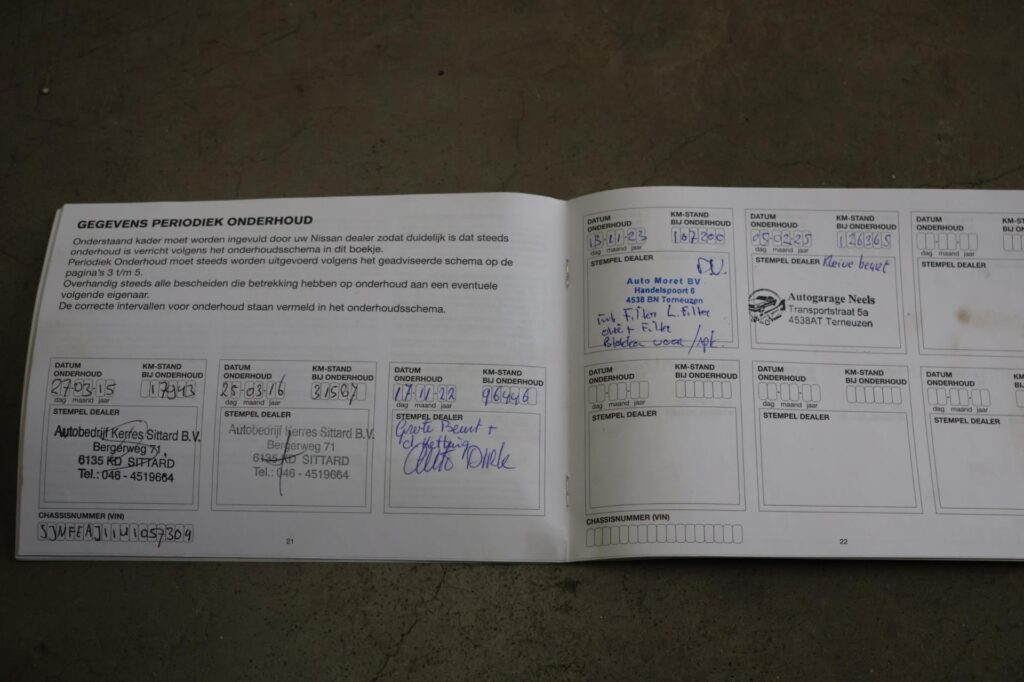 GEGEVENS PERIODIEK ONDERHOUD
Onderstaand kader moet worden ingevuld door uw Nissan dealer zodat duidelijk is dat steeds
onderhoud is verricht volgens het onderhoudsschema in dit boekje.
Periodiek Onderhoud moet steeds worden uitgevoerd volgens het geadviseerde schema op de
pagina's 3 t/m 5.
Overhandig steeds alle bescheiden die betrekking hebben op onderhoud aan een eventuele
volgende eigenaar.
De correcte intervallen voor onderhoud staan vermeld in het onderhoudsschema.
DATUM ONDERHOUD KM-STAND BIJ ONDERHOUD
27-03-15 17943
dag maand jaar
STEMPEL DEALER
Autobedrijf Kerres Sittard B.V.
Bergerweg 71
6135 KD SITTARD
Tel.: 046 - 4519664
DATUM ONDERHOUD KM-STAND BIJ ONDERHOUD
25-03-16 31567
dag maand jaar
STEMPEL DEALER
Autobedrijf Kerres Sittard B.V.
Bergerweg 71
6135 KD SITTARD
Tel.: 046 - 4519664
DATUM ONDERHOUD KM-STAND BIJ ONDERHOUD
17-11-22 96446
dag maand jaar
STEMPEL DEALER
Grote Beurt +
CHASSISNUMMER (VIN)
21
DATUM ONDERHOUD KM-STAND BIJ ONDERHOUD
13-11-23 107200
dag maand jaar
STEMPEL DEALER
Auto Moret BV
Handelspoort 6
4538 BN Terneuzen
Filter L. Filter
olie + Filter
Blokken voor / apk.
DATUM ONDERHOUD KM-STAND BIJ ONDERHOUD
05-02-25 126365
dag maand jaar
STEMPEL DEALER Kleine beurt
Autogarage Neels
Transportstraat 5a
4538AT Terneuzen
DATUM ONDERHOUD KM-ST
dag maand jaar
STEMPEL DEALER
DATUM ONDERHOUD KM-STAND BIJ ONDERHOUD
dag maand jaar
STEMPEL DEALER
DATUM ONDERHOUD KM-STAND BIJ ONDERHOUD
dag maand jaar
STEMPEL DEALER
DATUM ONDERHOUD
dag maand jaar
STEMPEL DEALER
CHASSISNUMMER (VIN)
22